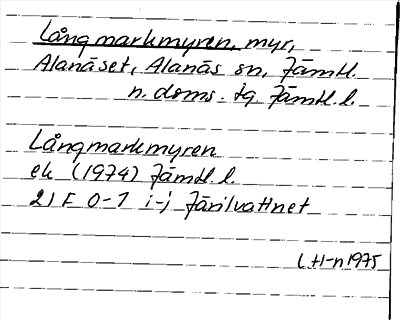 Långmarkmyren, myr,
Alanäset, Alanäs sn, Jämtl.
n. doms. tg. Jämtl. l.
Långmarkmyren
ek (1974) Jämtl. l.
21 F 0-1 i-j Järilvattnet
LH-n 1975